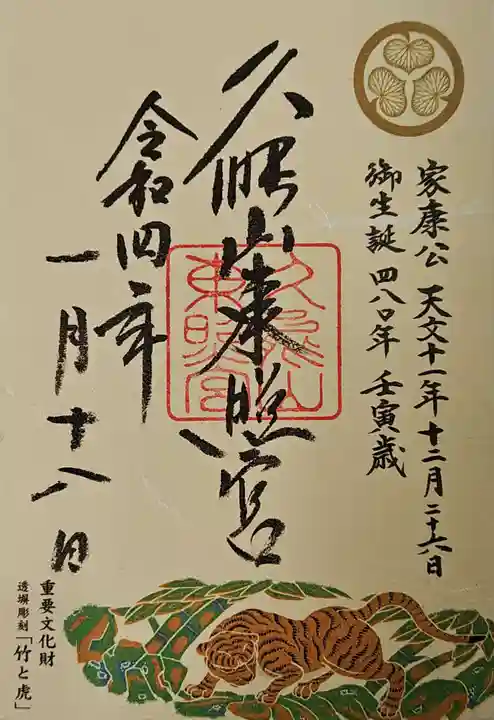 家康公 天文十一年 十二月二十六日
御生誕 四八〇年 壬寅歳
久能山東照宮
令和四年
一月十八日
重要文化財
透塀彫刻「竹と虎」